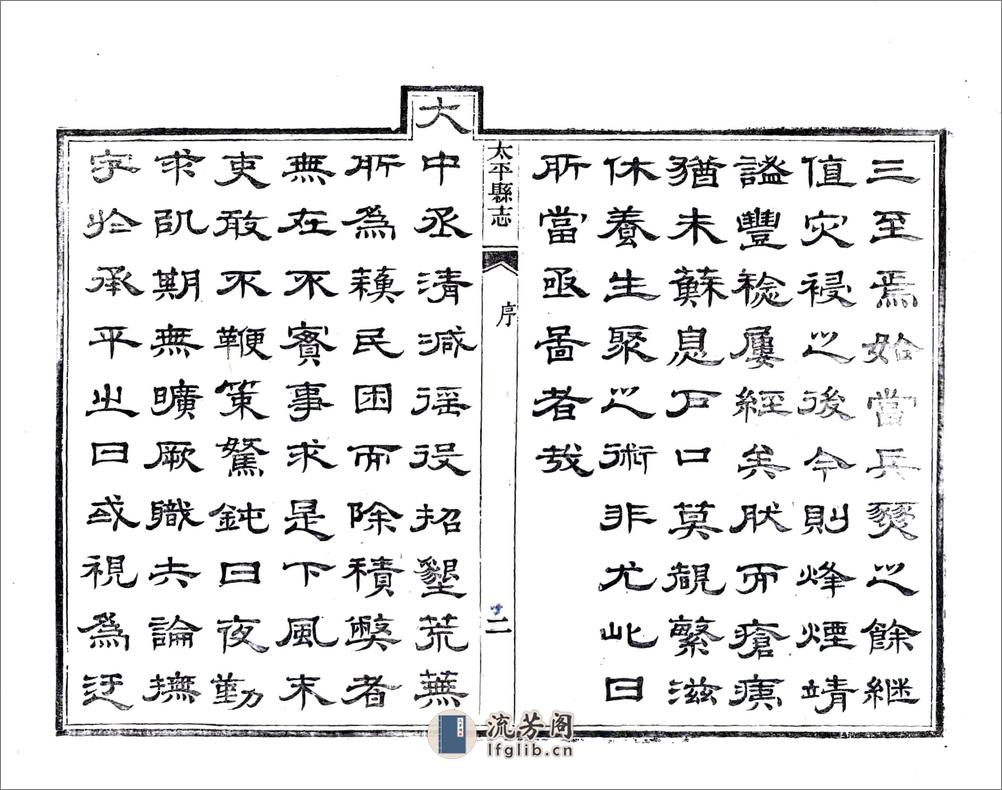 三至焉始當兵燹之餘繼
值灾祲之後今則烽煙靖
謐豐稔屢經矣肰而瘡痍
猶未蘇息戶口莫覩繁滋
休養生聚之術非尤此日
所當亟啚者哉
太平縣志
序
二
大
中丞清減徭役招墾荒蕪
所為蘓民困而除積獘者
無在不實事求是下風末
吏敢不鞭策駑鈍日夜勤
求訊期無曠厥職夫論撫
字於承平之日或視為迂
流芳阁
lfglib.cn